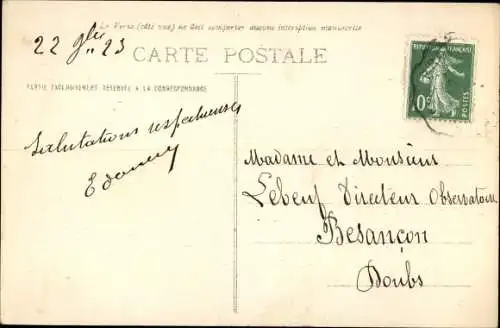 Le Verso (côté vue) ne doit comporter aucune inscription manuscrite
22 9bre 23
CARTE POSTALE
PARTIE EXCLUSIVEMENT RÉSERVÉE A LA CORRESPONDANCE
RÉPUBLIQUE FRANÇAISE
POSTES
Salutations respectueuses
Madame et Monsieur
Lebeuf Directeur Observatoire
Besançon
Doubs